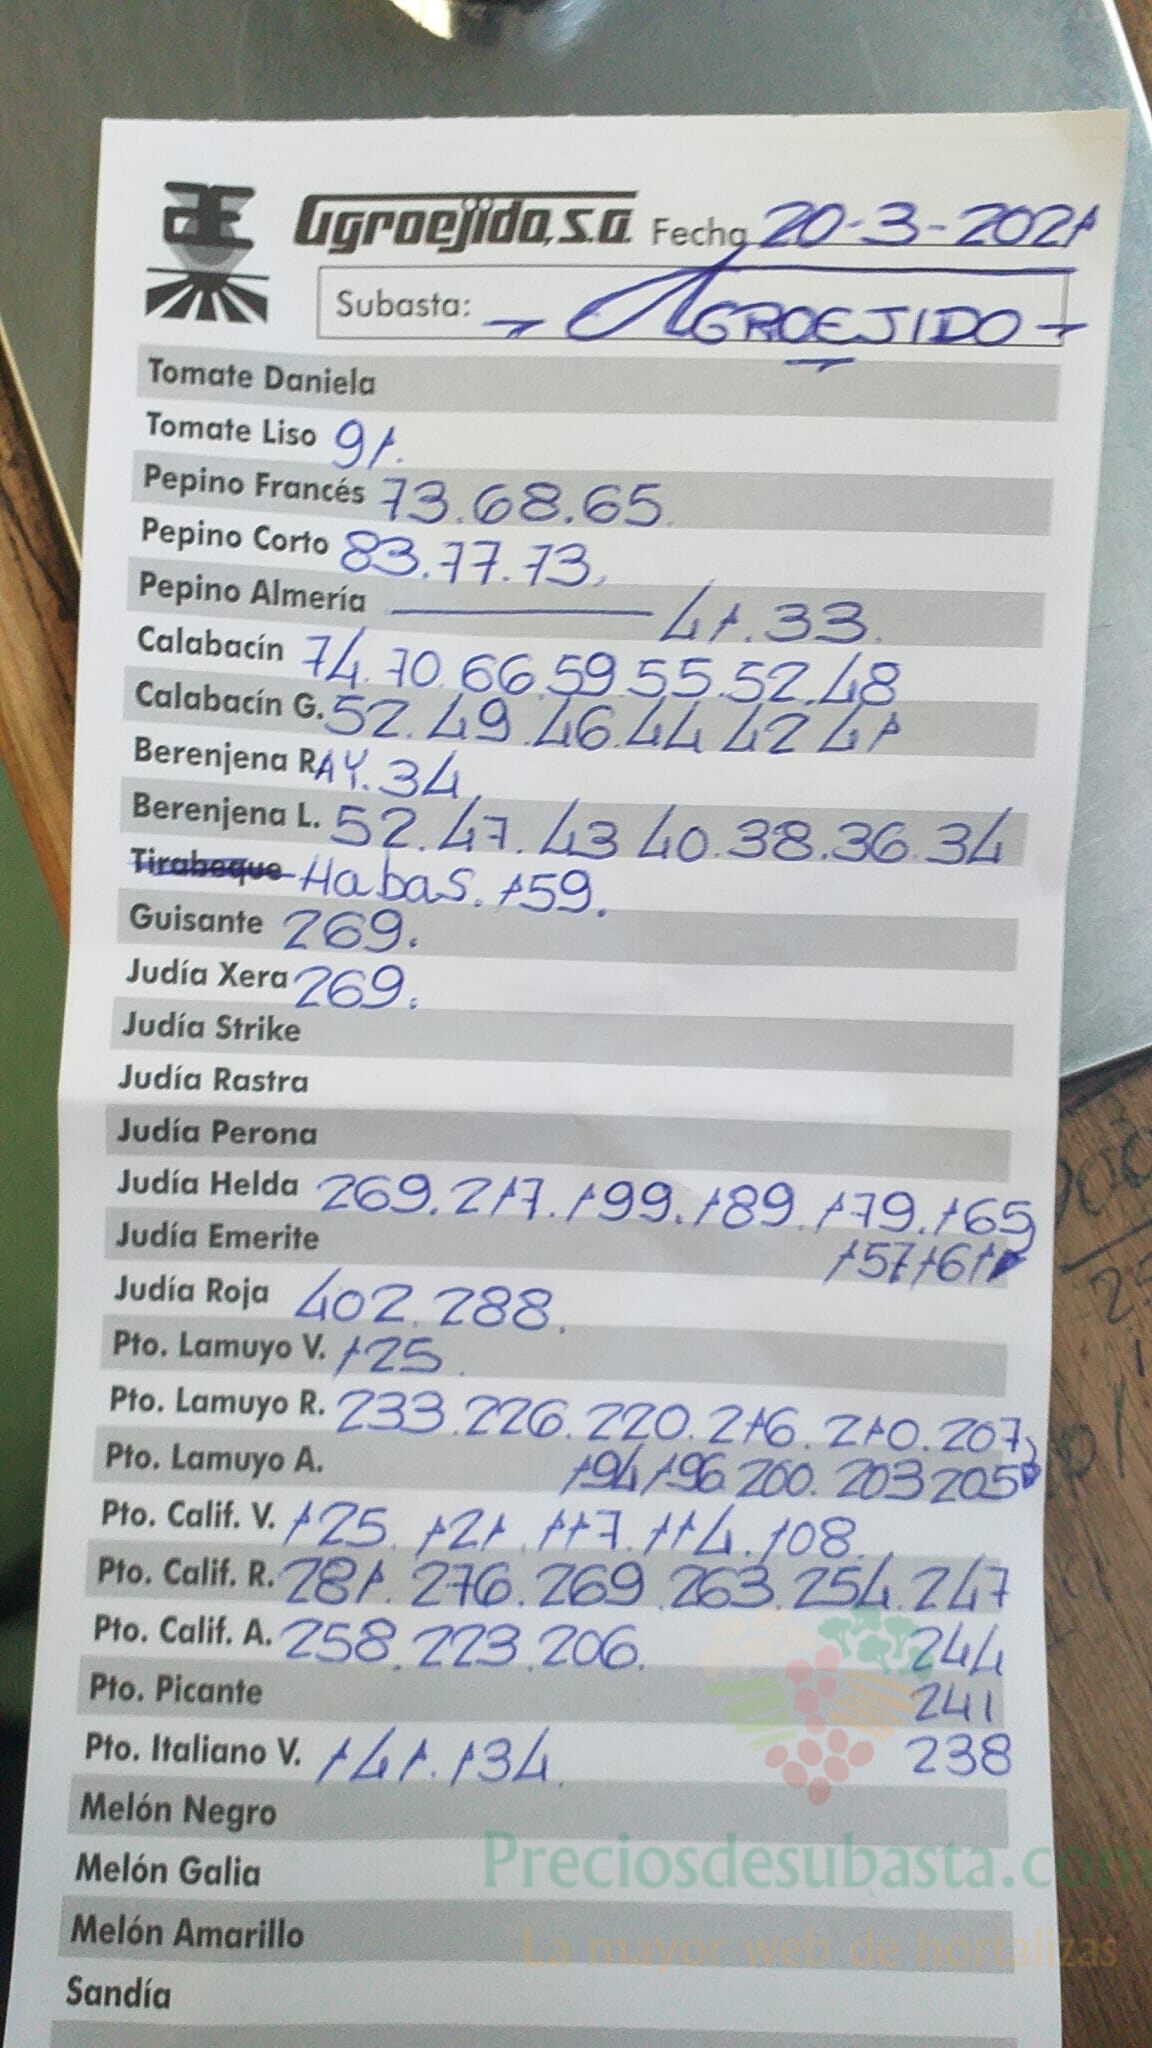 agroejido, s.a. Fecha 20-3-2021
Subasta: - AGROEJIDO -
Tomate Daniela
Tomate Liso 91.
Pepino Francés 73.68.65.
Pepino Corto 83.77.73.
Pepino Almería ——— 41.33.
Calabacín 74.70.66.59.55.52.48
Calabacín G. 52.49.46.44 42 41
Berenjena RAY. 34
Berenjena L. 52.47.43 40.38.36.34
Tirabeque Habas. 159.
Guisante 269.
Judía Xera 269.
Judía Strike
Judía Rastra
Judía Perona
Judía Helda 269.217.199.189.179.165
Judía Emerite 157 161
Judía Roja 402.288.
Pto. Lamuyo V. 125.
Pto. Lamuyo R. 233.226.220.216.210.207
Pto. Lamuyo A. 194 196.200.203 205
Pto. Calif. V. 125.121.117.114.108
Pto. Calif. R. 281.276.269.263.254.247
Pto. Calif. A. 258.223.206. 244
Pto. Picante 241
Pto. Italiano V. 141.134. 238
Melón Negro
Melón Galia
Preciosdesubasta.com
Melón Amarillo
La mayor web de hortalizas
Sandía